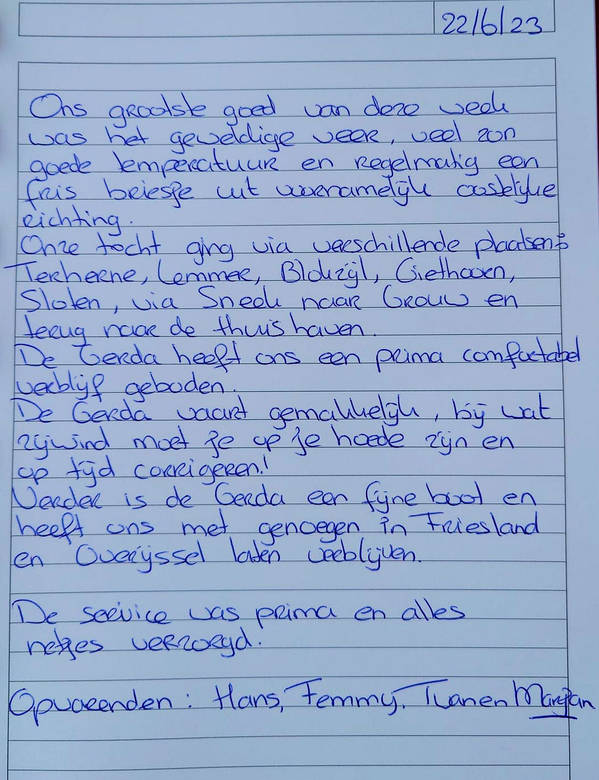 22/6/23
Ons grootste goed van deze week
was het geweldige weer, veel zon
goede temperatuur en regelmatig een
fris briesje uit voornamelijk oostelijke
richting.
Onze tocht ging via verschillende plaatsen:
Terherne, Lemmer, Blokzijl, Giethoorn,
Sloten, via Sneek naar Grouw en
terug naar de thuishaven.
De Gerda heeft ons een prima comfortabel
verblijf geboden.
De Gerda vaart gemakkelijk, bij wat
zijwind moet je op je hoede zijn en
op tijd corrigeren!
Verder is de Gerda een fijne boot en
heeft ons met genoegen in Friesland
en Overijssel laten verblijven.
De service was prima en alles
netjes verzorgd.
Opvarenden: Hans, Femmy, en